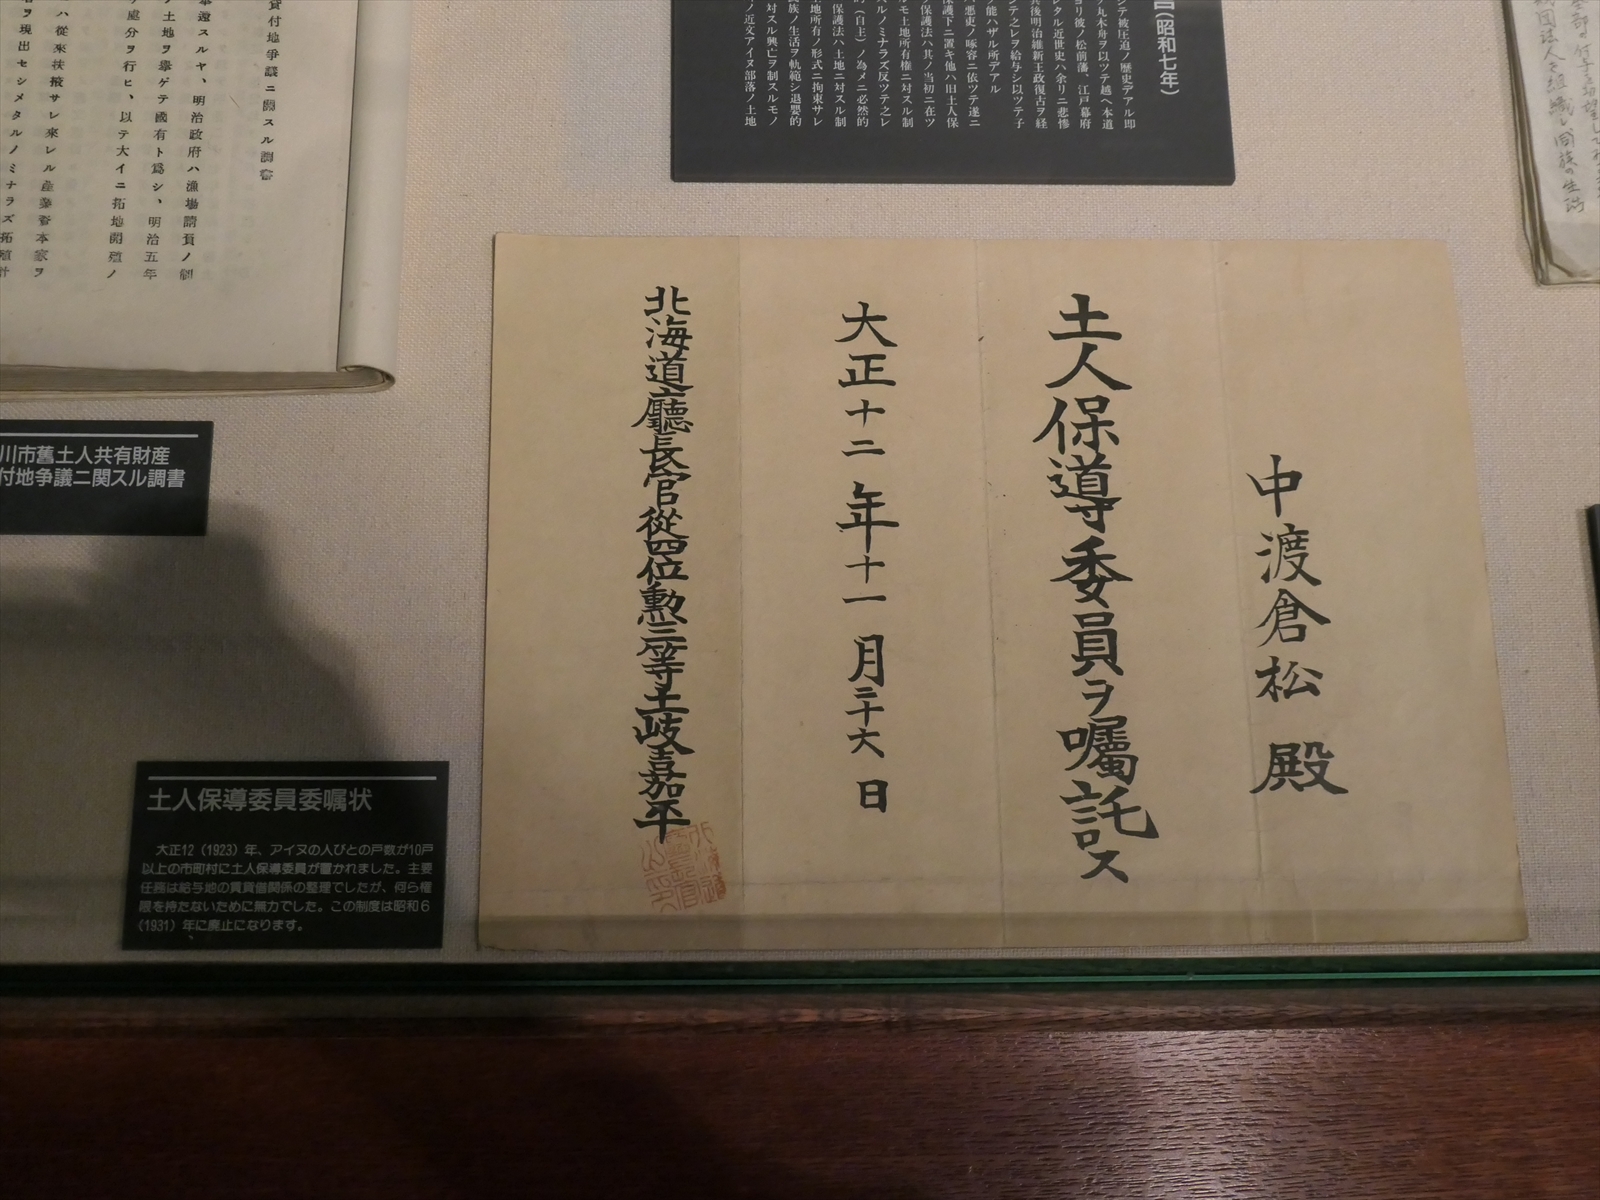 貸付地争議ニ關スル調書
擧還スルヤ、明治政府ハ漁場請負ノ制
ノ土地ヲ擧ゲテ國有ト爲シ、明治五年
處分ヲ行ヒ、以テ大イニ拓地開殖ノ
ハ從來扶掖サレ來レル産業資本家ヲ
ヲ現出セシメタルノミナラズ拓殖計
川市舊土人共有財産
付地争議ニ関スル調書
(昭和七年)
シテ被圧迫ノ歴史デアル即
丸木舟ヲ以ツテ越ヘ本道
ヨリ彼ノ松前藩、江戸幕府
レタル近世史ハ余リニ悲惨
其後明治維新王政復古ヲ経
シテ之レヲ給与シ以ツテ子
能ハザル所デアル
保護下ニ置キ他ハ旧土人保
悪吏ノ啄容ニ依ツテ遂ニ
保護法ハ其ノ当初ニ在ツ
ルモ土地所有権ニ対スル制
ルノミナラズ反ツテ之レ
(自主)ノ為メニ必然的
保護法ハ土地ニ対スル制
地所有ノ形式ニ拘束サレ
族ノ生活ヲ軌範シ退嬰的
対スル興亡ヲ制スルモノ
ノ近文アイヌ部落ノ土地
団法人を組織し同族の生活
中渡倉松殿
土人保導委員ヲ囑託ス
大正十二年十一月二十六日
北海道廳長官從四位勲三等土岐嘉平
土人保導委員委嘱状
大正12(1923)年、アイヌの人びとの戸数が10戸
以上の市町村に土人保導委員が置かれました。主要
任務は給与地の賃貸借関係の整理でしたが、何ら権
限を持たないために無力でした。この制度は昭和6
(1931)年に廃止になります。